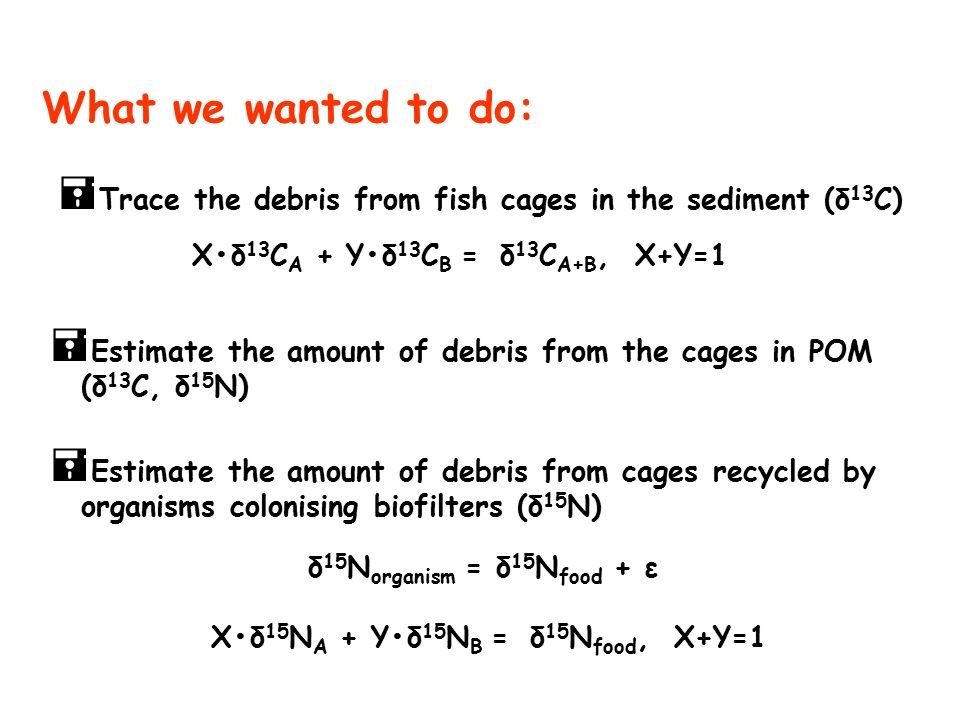 What we wanted to do:
Trace the debris from fish cages in the sediment (δ¹³C)
X•δ¹³C_A + Y•δ¹³C_B = δ¹³C_A+B, X+Y=1
Estimate the amount of debris from the cages in POM
(δ¹³C, δ¹⁵N)
Estimate the amount of debris from cages recycled by
organisms colonising biofilters (δ¹⁵N)
δ¹⁵N_organism = δ¹⁵N_food + ε
X•δ¹⁵N_A + Y•δ¹⁵N_B = δ¹⁵N_food, X+Y=1